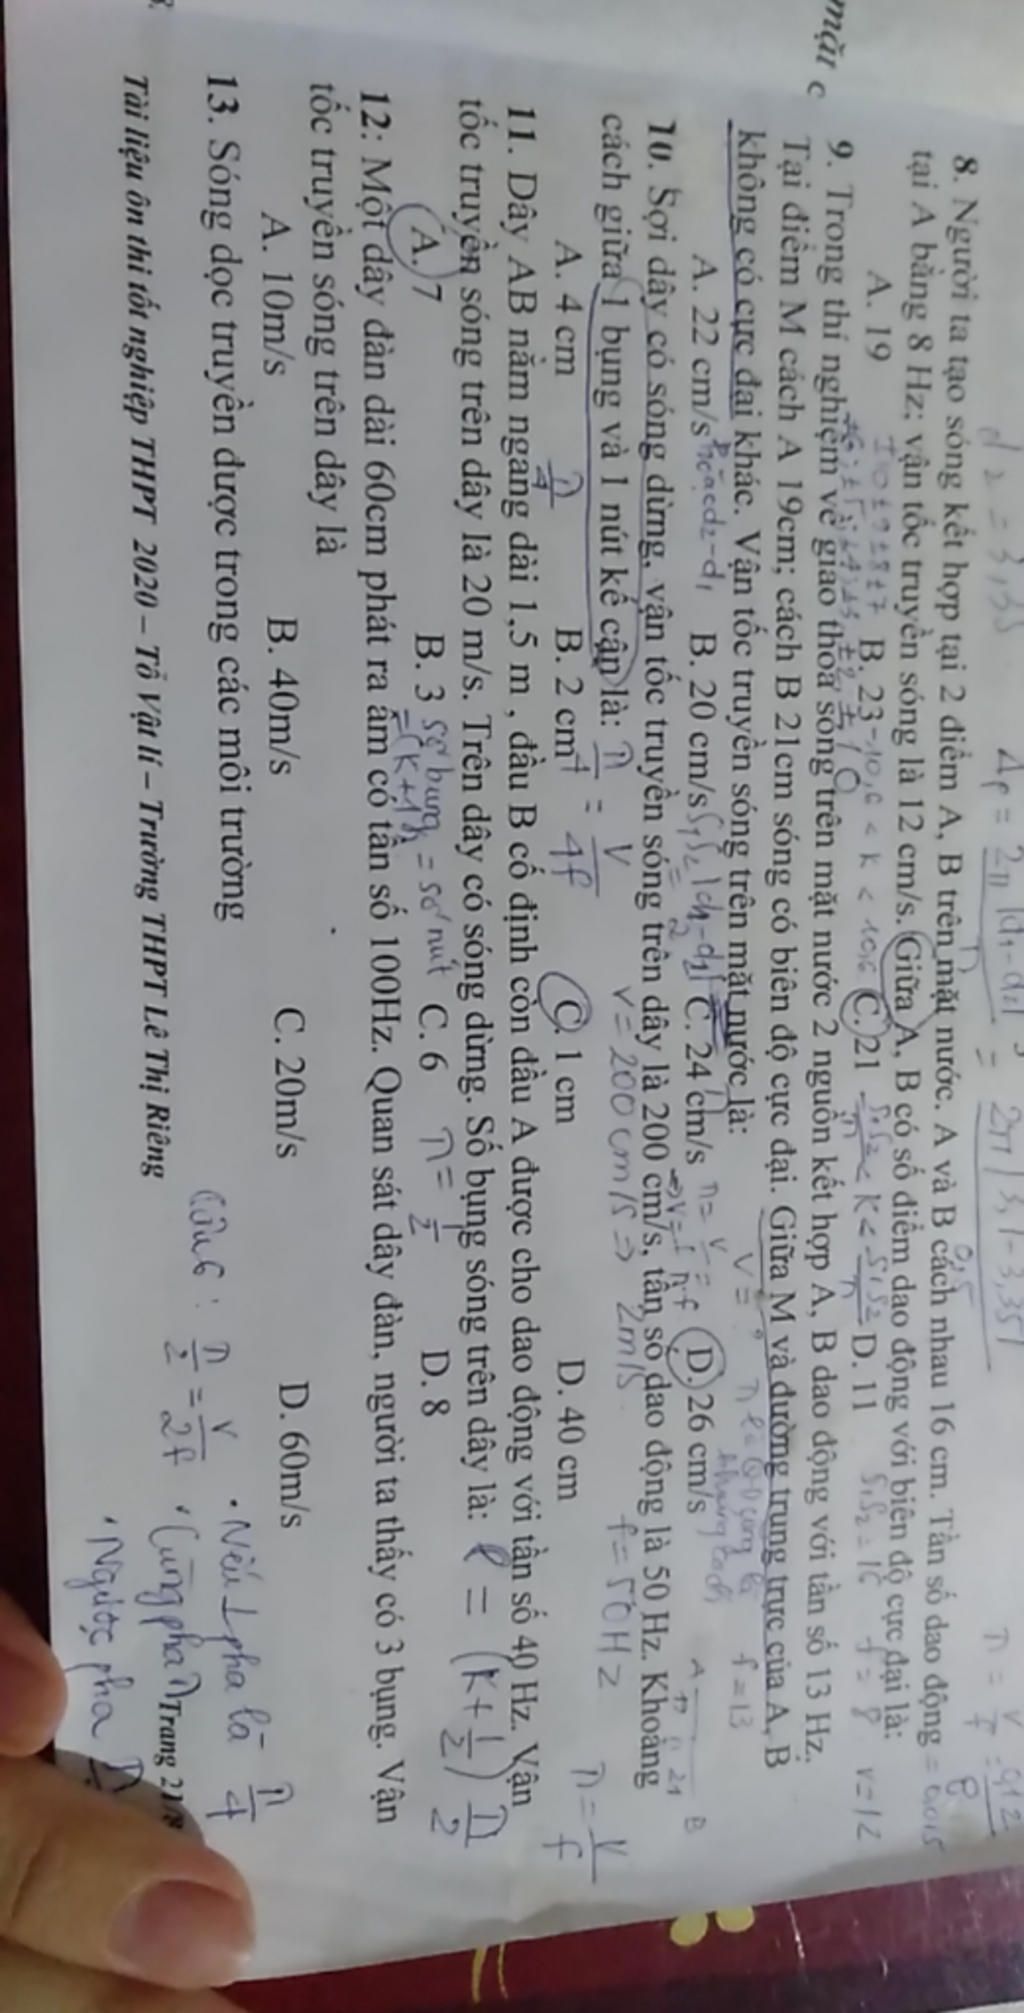 d2 = 3,35
Δφ = 2π|d1-d2| = 2π|3,1-3,35|
8. Người ta tạo sóng kết hợp tại 2 điểm A, B trên mặt nước. A và B cách nhau 16 cm. Tần số dao động
tại A bằng 8 Hz; vận tốc truyền sóng là 12 cm/s. Giữa A, B có số điểm dao động với biên độ cực đại là:
A. 19 B. 23 C. 21 D. 11
-10,6 < K < 10,6
S1S2 = 16 f = 8 v = 12
mặt c
9. Trong thí nghiệm về giao thoa sóng trên mặt nước 2 nguồn kết hợp A, B dao động với tần số 13 Hz.
Tại điểm M cách A 19cm; cách B 21cm sóng có biên độ cực đại. Giữa M và đường trung trực của A, B
không có cực đại khác. Vận tốc truyền sóng trên mặt nước là:
V = ? f = 13
A. 22 cm/s B. 20 cm/s C. 24 cm/s D. 26 cm/s
10. Sợi dây có sóng dừng, vận tốc truyền sóng trên dây là 200 cm/s, tần số dao động là 50 Hz. Khoảng
cách giữa 1 bụng và 1 nút kế cận là:
λ/4 = V/4f V = 200 cm/s => 2m/s f = 50Hz
A. 4 cm B. 2 cm C. 1 cm D. 40 cm
λ = V/f
11. Dây AB nằm ngang dài 1,5 m , đầu B cố định còn đầu A được cho dao động với tần số 40 Hz. Vận
tốc truyền sóng trên dây là 20 m/s. Trên dây có sóng dừng. Số bụng sóng trên dây là: l = (K+1/2) λ/2
A. 7 B. 3 C. 6 D. 8
số bụng = số nút λ = 1/2
=(K+1)
12: Một dây đàn dài 60cm phát ra âm có tần số 100Hz. Quan sát dây đàn, người ta thấy có 3 bụng. Vận
tốc truyền sóng trên dây là
A. 10m/s B. 40m/s C. 20m/s D. 60m/s
13. Sóng dọc truyền được trong các môi trường
Câu 6 : λ/2 = V/2f
· Nếu ⊥ pha là λ/4
· Cùng pha λ
· Ngược pha
Tài liệu ôn thi tốt nghiệp THPT 2020 – Tổ Vật lí – Trường THPT Lê Thị Riêng